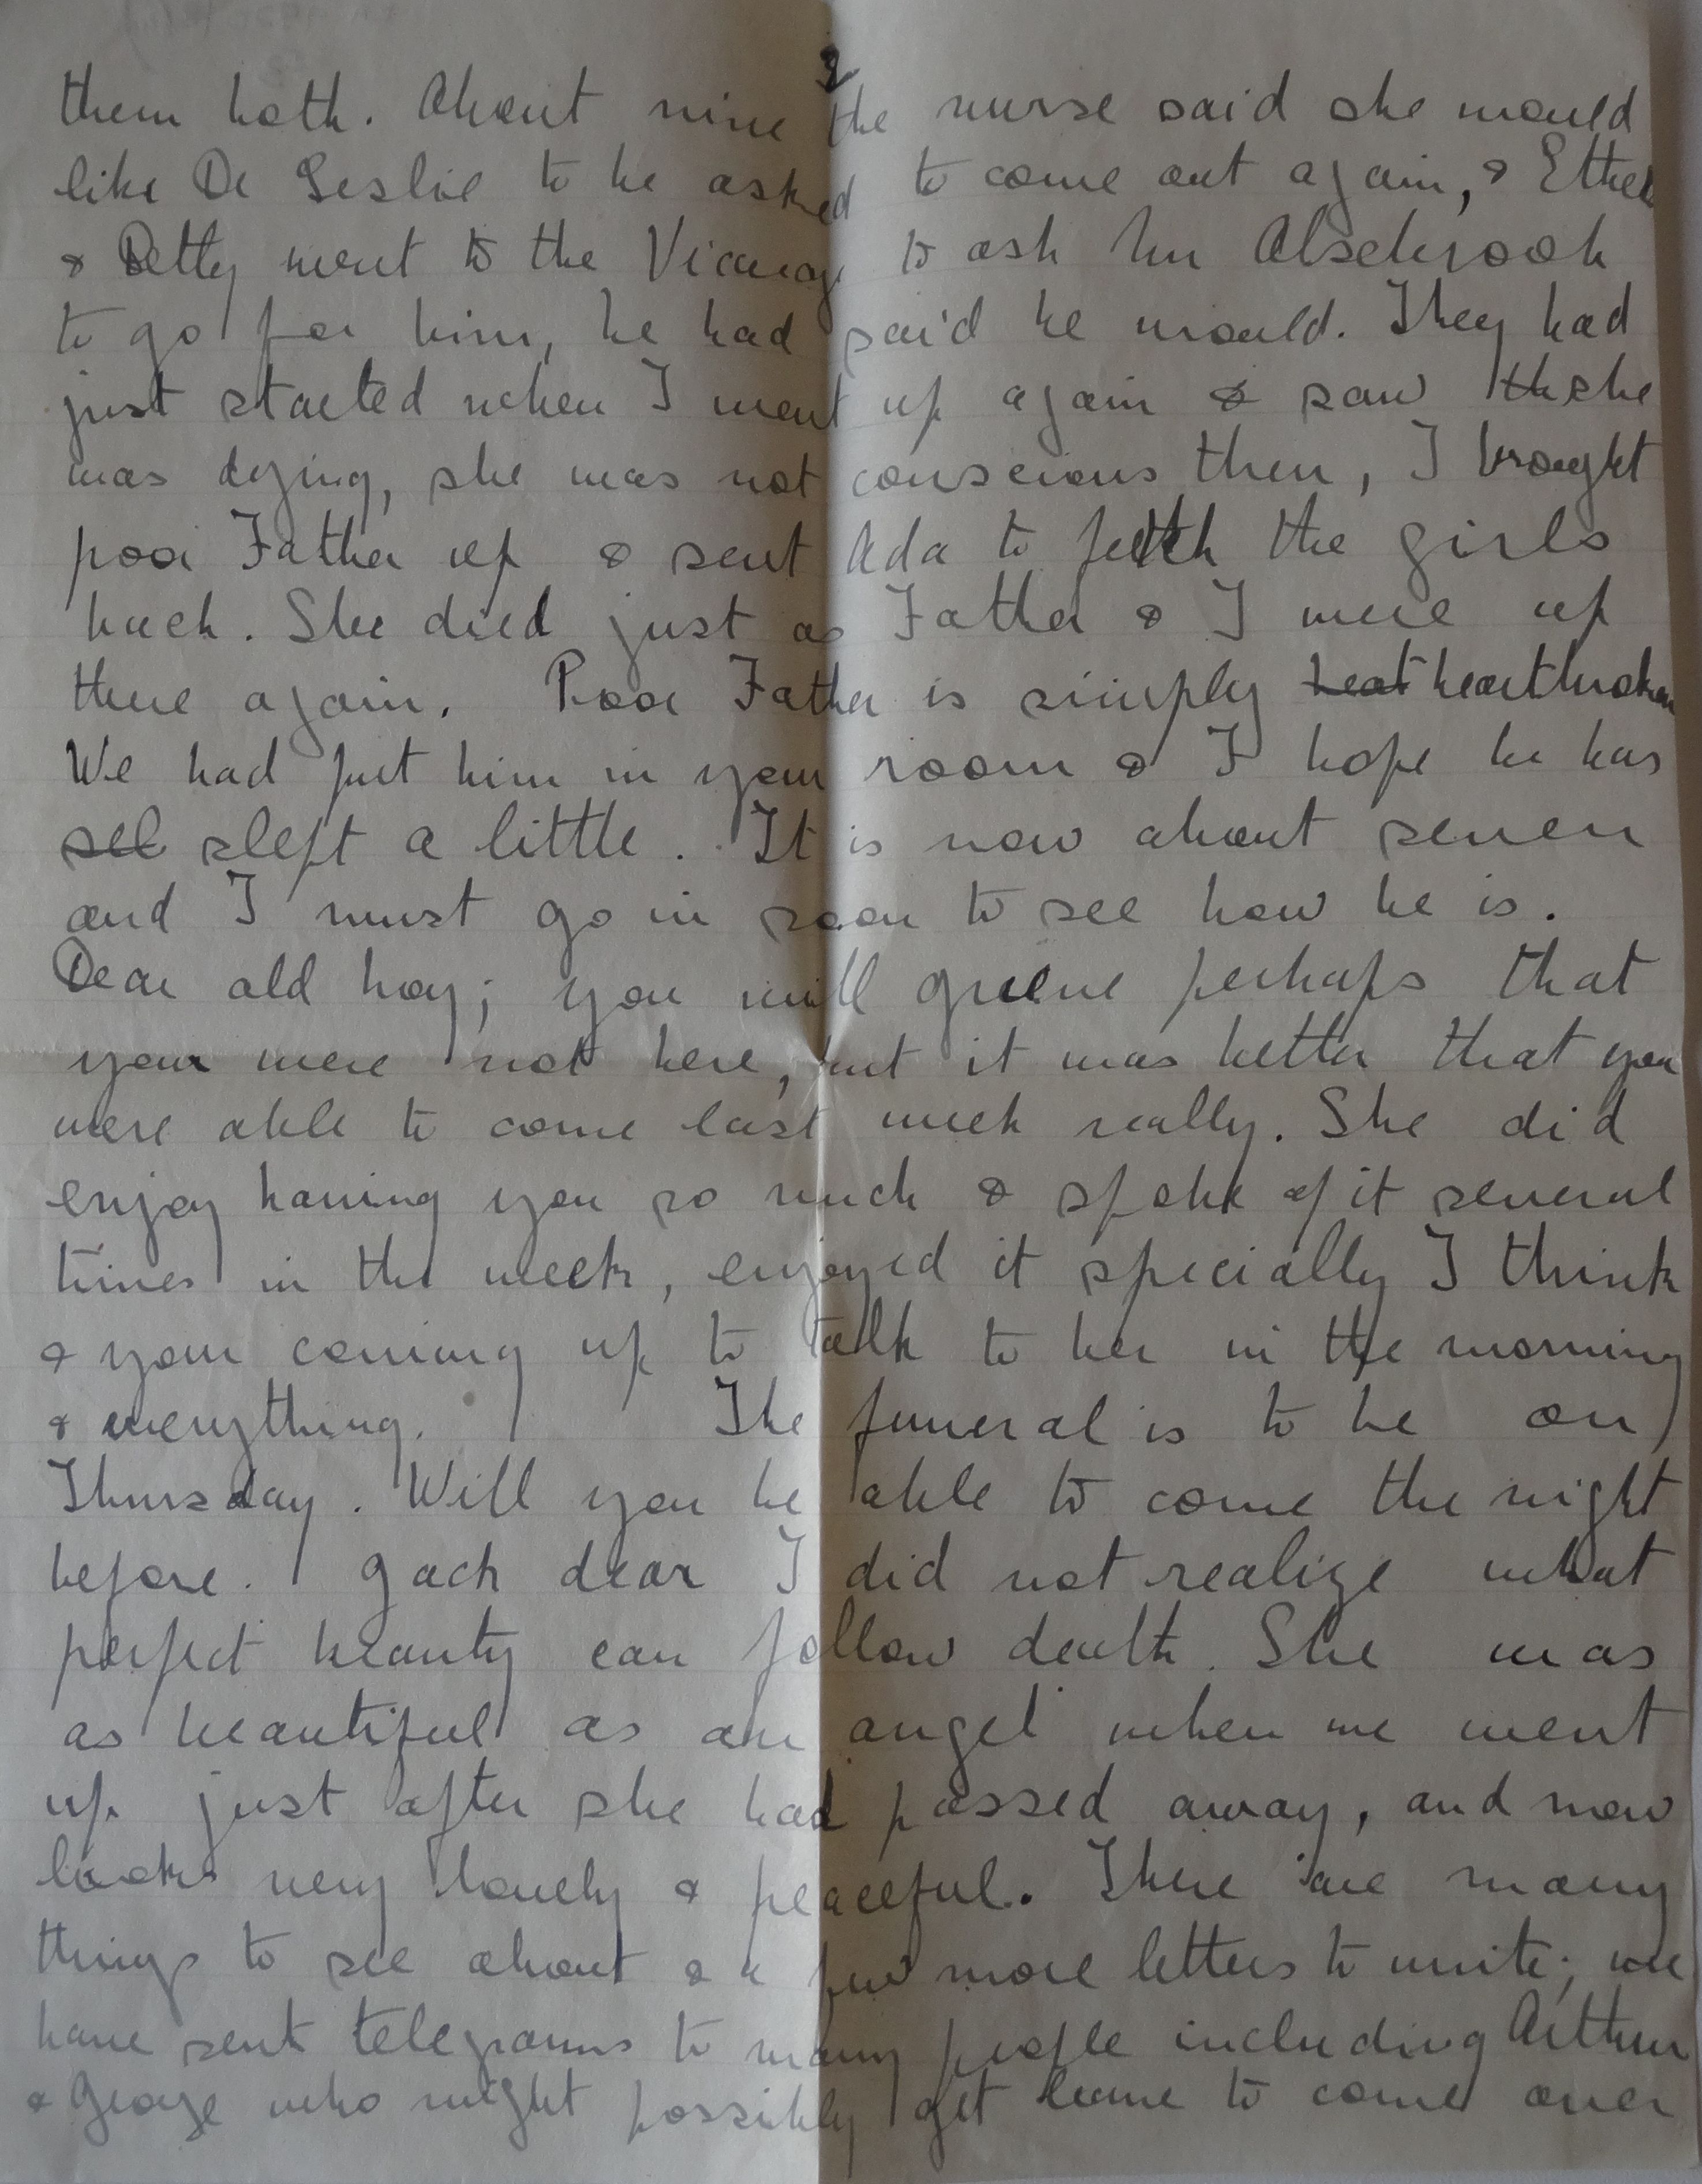 3
them both. About nine the nurse said she would
like Dr Leslie to be asked to come out again, & Ethel
& Betty went to the Vicarage to ask Mr Alsebrook
to go for him, he had said he would. They had
just started when I went up again & saw th she
was dying, she was not conscious then, I brought
poor Father up & sent Ada to fetch the girls
back. She died just as Father & I were up
there again. Poor Father is simply heat heartbroken
We had put him in your room & I hope he has
sel slept a little. It is now about seven
and I must go in soon to see how he is.
Dear old boy; you will grieve perhaps that
your were not here, but it was better that you
were able to come last week really. She did
enjoy having you so much & spoke of it several
times in the week, enjoyed it specially I think
& your coming up to talk to her in the morning
& everything. The funeral is to be on
Thursday. Will you be able to come the night
before. Jack dear I did not realize what
perfect beauty can follow death. She was
as beautiful as an angel when we went
up just after she had passed away, and now
looks very lovely & peaceful. There are many
things to see about & a few more letters to write; we
have sent telegrams to many people including Arthur
& George who might possibly get leave to come over